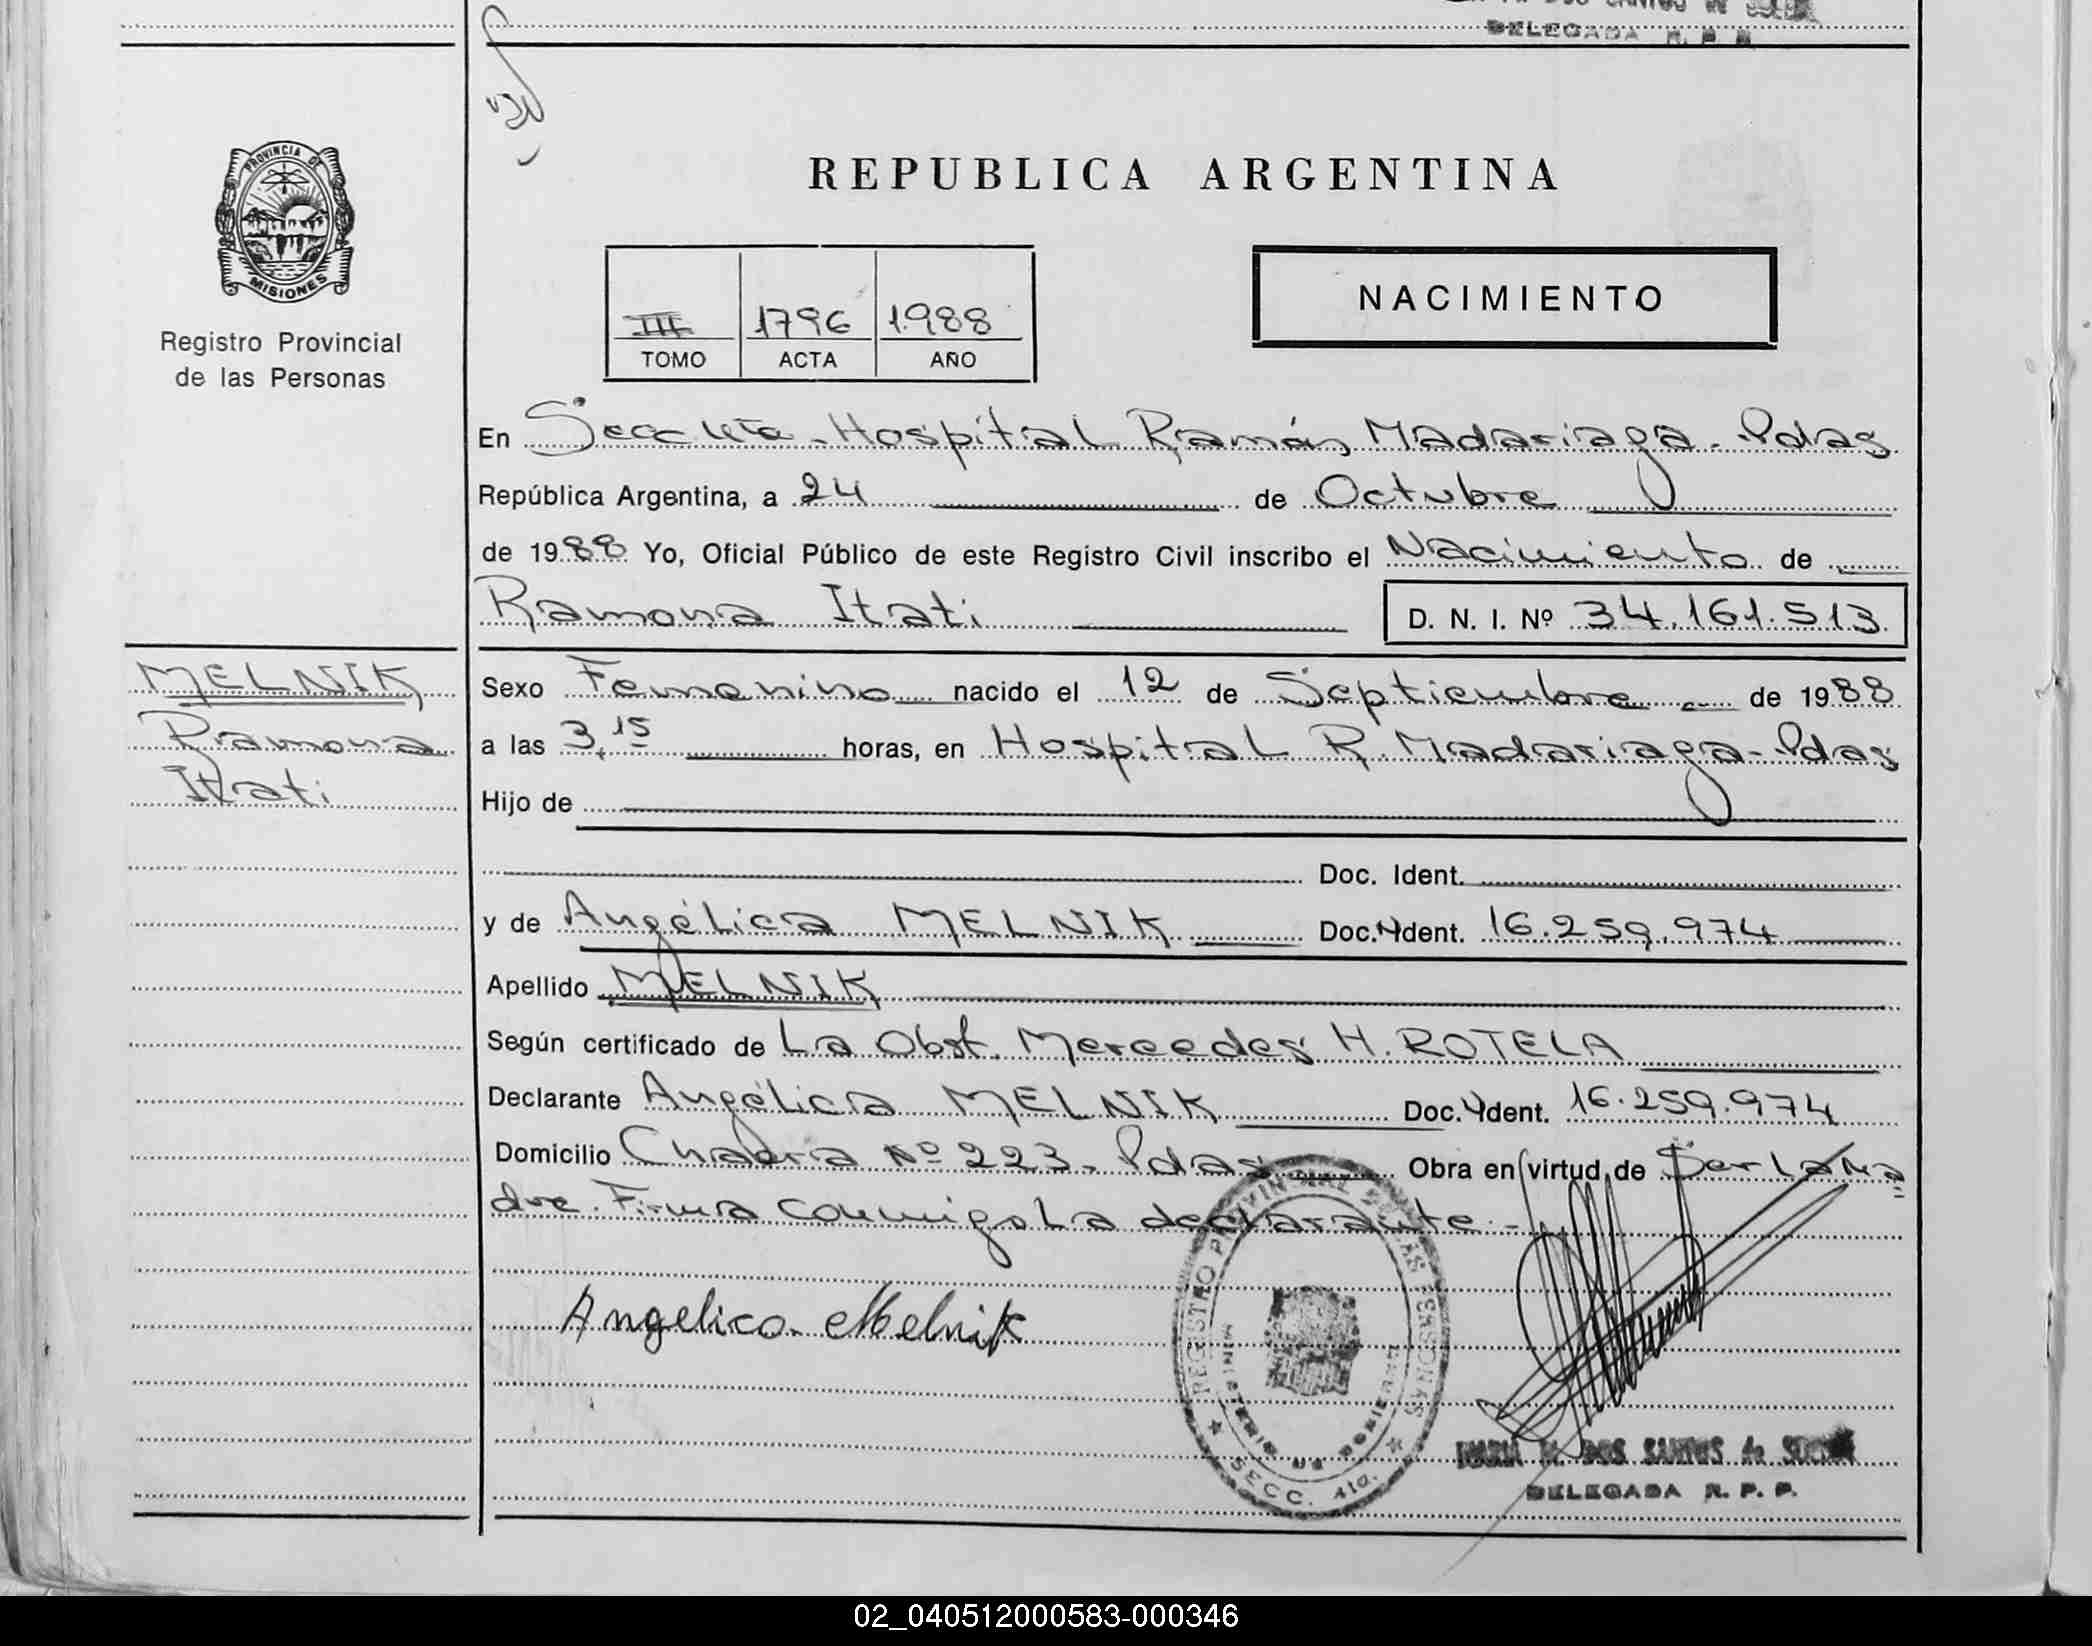 DELEGADA R. P. P.
PROVINCIA DE
MISIONES
Registro Provincial
de las Personas
REPUBLICA ARGENTINA
III 1796 1.988
TOMO ACTA AÑO
NACIMIENTO
En Secc 4ta - Hospital Ramón Madariaga - Pdas
República Argentina, a 24 de Octubre
de 1988 Yo, Oficial Público de este Registro Civil inscribo el Nacimiento de
Ramona Itati D. N. I. Nº 34.161.513
MELNIK
Ramona
Itati
Sexo Femenino nacido el 12 de Septiembre de 1988
a las 3,15 horas, en Hospital R. Madariaga - Pdas
Hijo de
Doc. Ident.
y de Angélica MELNIK Doc. Ident. 16.259.974
Apellido MELNIK
Según certificado de La Obst. Mercedes H. ROTELA
Declarante Angélica MELNIK Doc. Ident. 16.259.974
Domicilio Chacra Nº 223 - Pdas Obra en virtud de Ser La Ma
dre. Firma conmigo La declarante -
Angelica Melnik
REGISTRO PROVINCIAL DE LAS PERSONAS
MINISTERIO DE GOBIERNO
SECC. 4ta.
MARIA DOS SANTOS de
DELEGADA R. P. P.
02_040512000583-000346